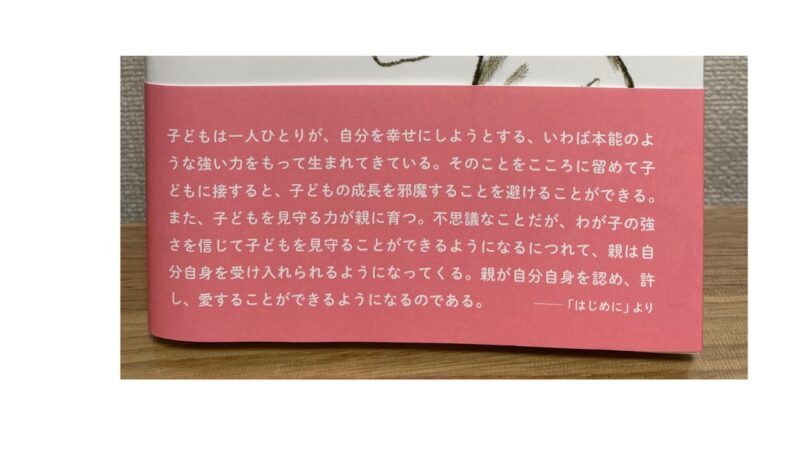 子どもは一人ひとりが、自分を幸せにしようとする、いわば本能のよ
うな強い力をもって生まれてきている。そのことをこころに留めて子
どもに接すると、子どもの成長を邪魔することを避けることができる。
また、子どもを見守る力が親に育つ。不思議なことだが、わが子の強
さを信じて子どもを見守ることができるようになるにつれて、親は自
分自身を受け入れられるようになってくる。親が自分自身を認め、許
し、愛することができるようになるのである。
――「はじめに」より